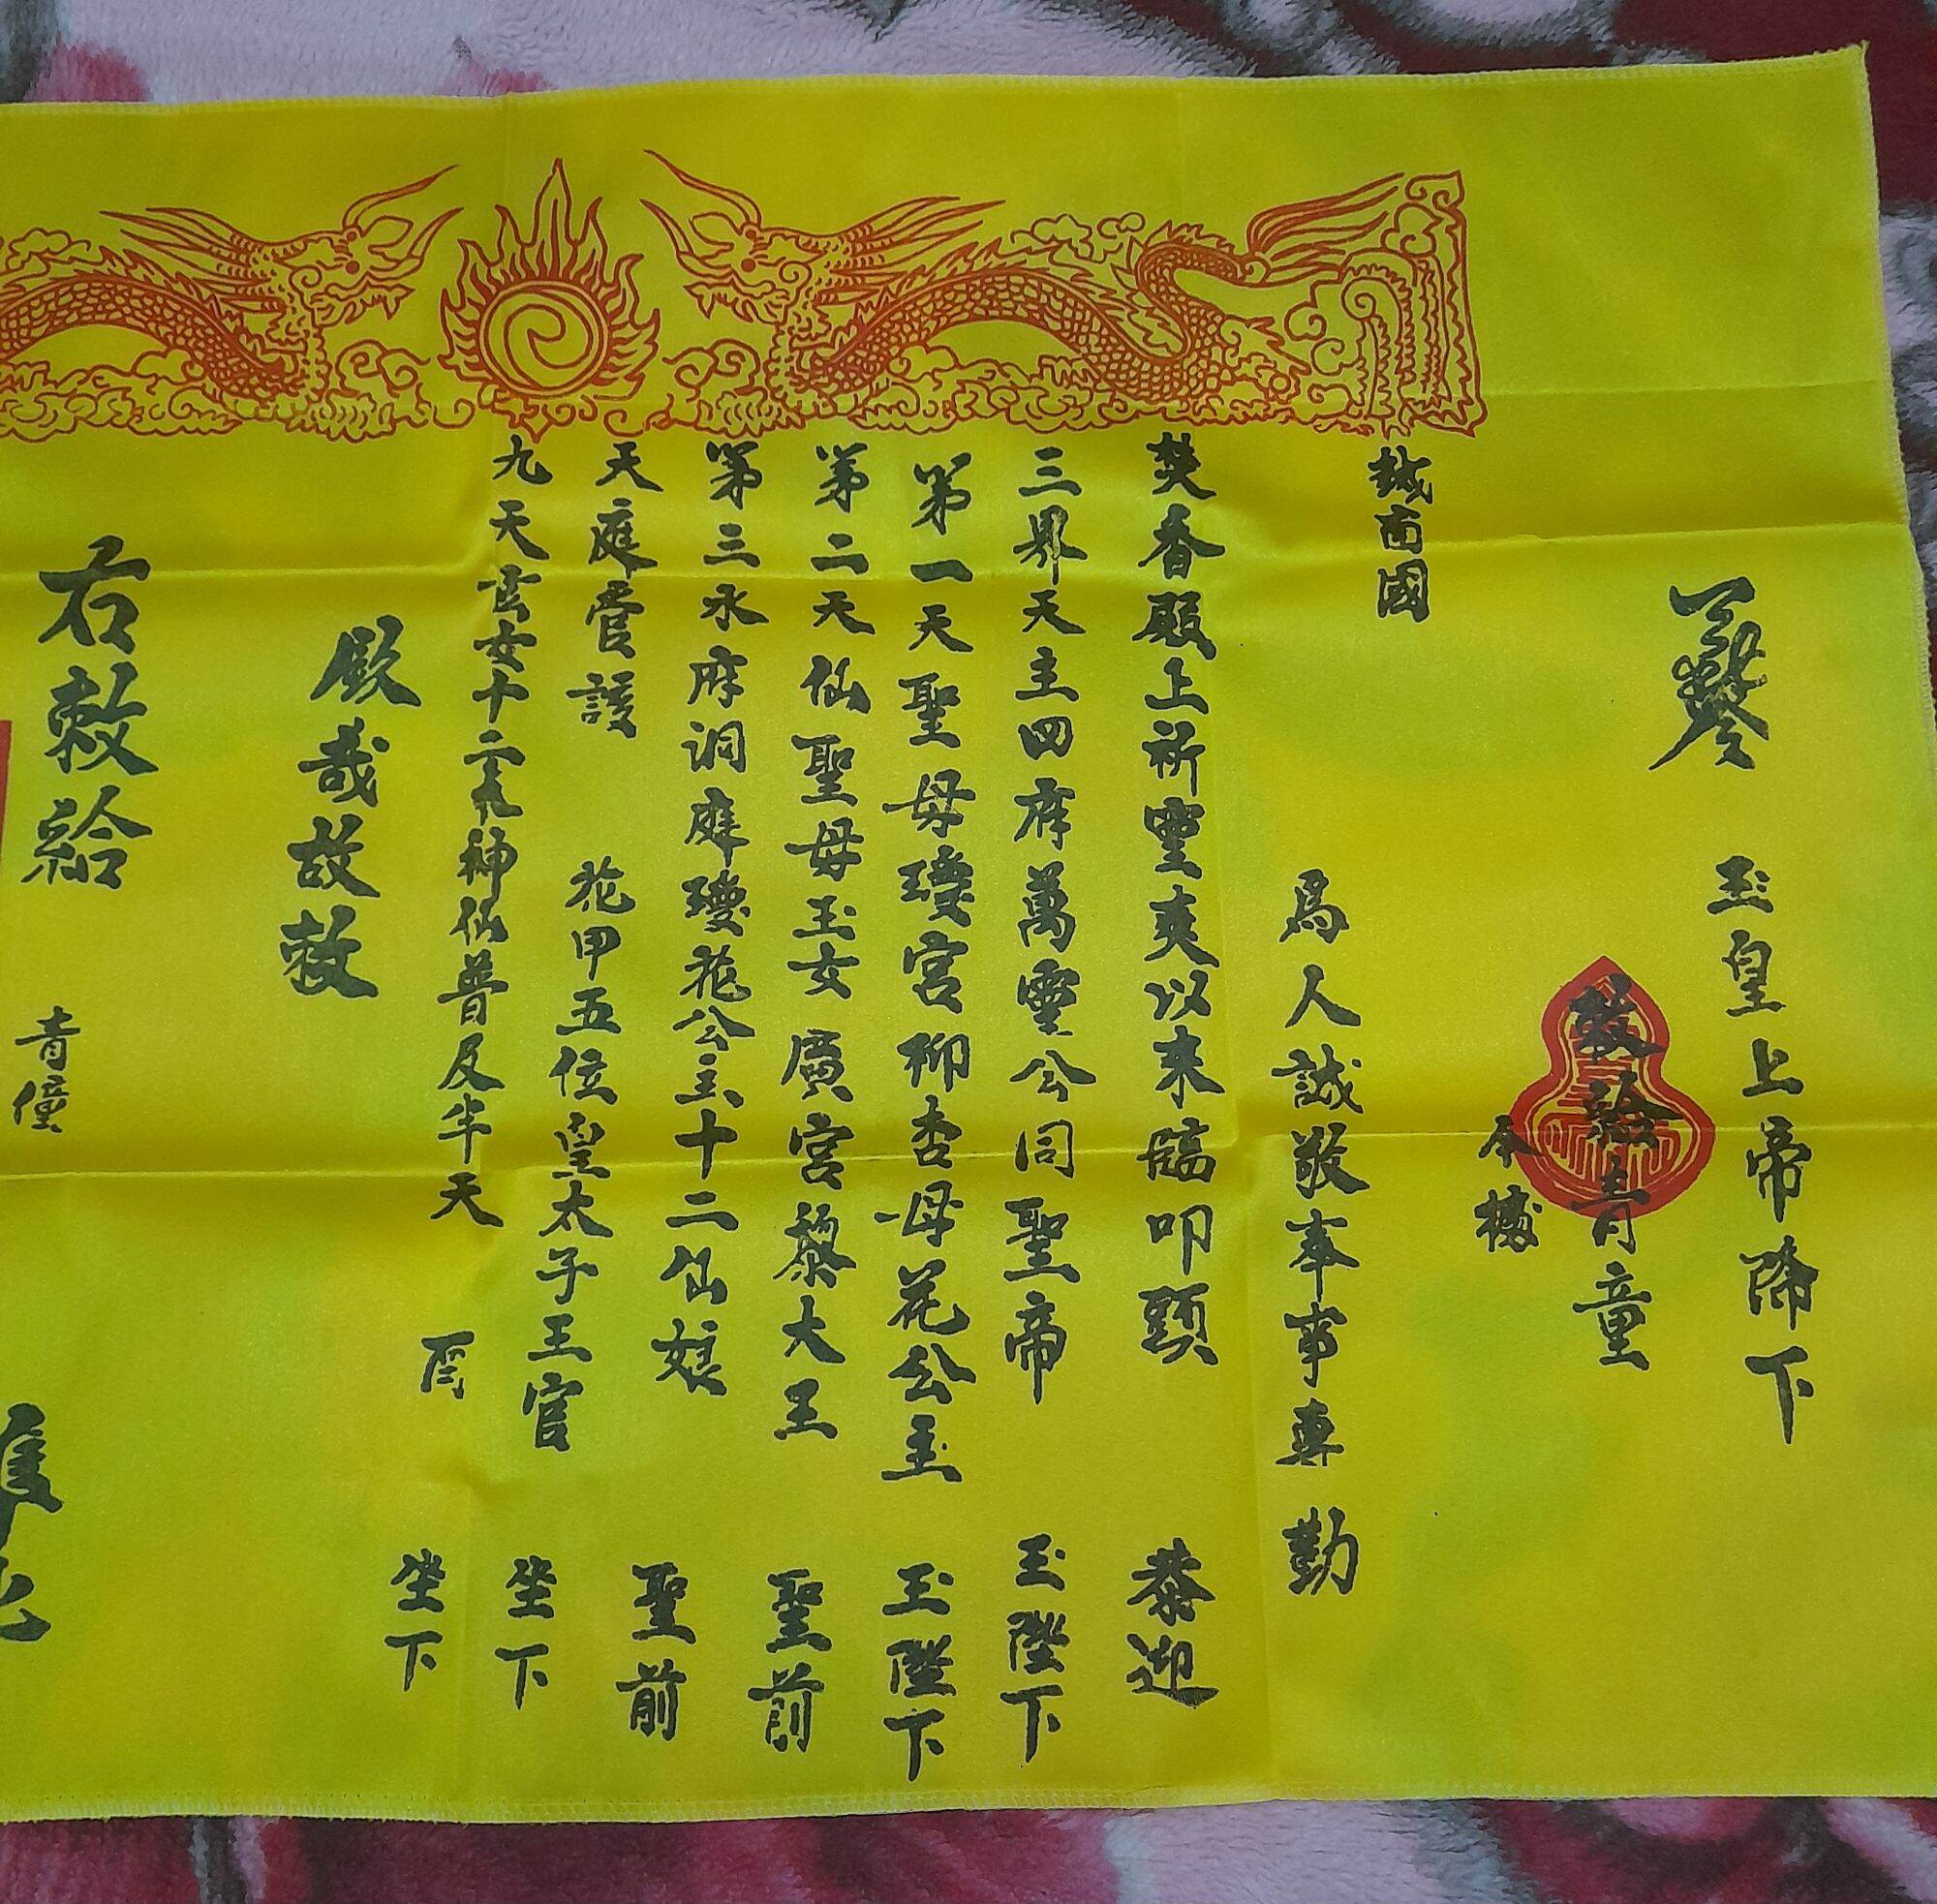 玉皇上帝降下
敕給青童
本
越南國
為人誠敬奉事專勤
焚香殿上祈靈爽以来臨叩頭 恭迎
三界天主四府萬靈公同聖帝 玉陛下
第一天聖母瓊宮柳杏母花公主 玉陛下
第二天仙聖母玉女廣宮黎大王 聖前
第三水府洞庭瓊花公主十二仙娘 聖前
天庭管護 花甲五位皇太子王官 坐下
九天玄女十二神仙普及半天 坐下
欽哉故敕
右敕給 青僮